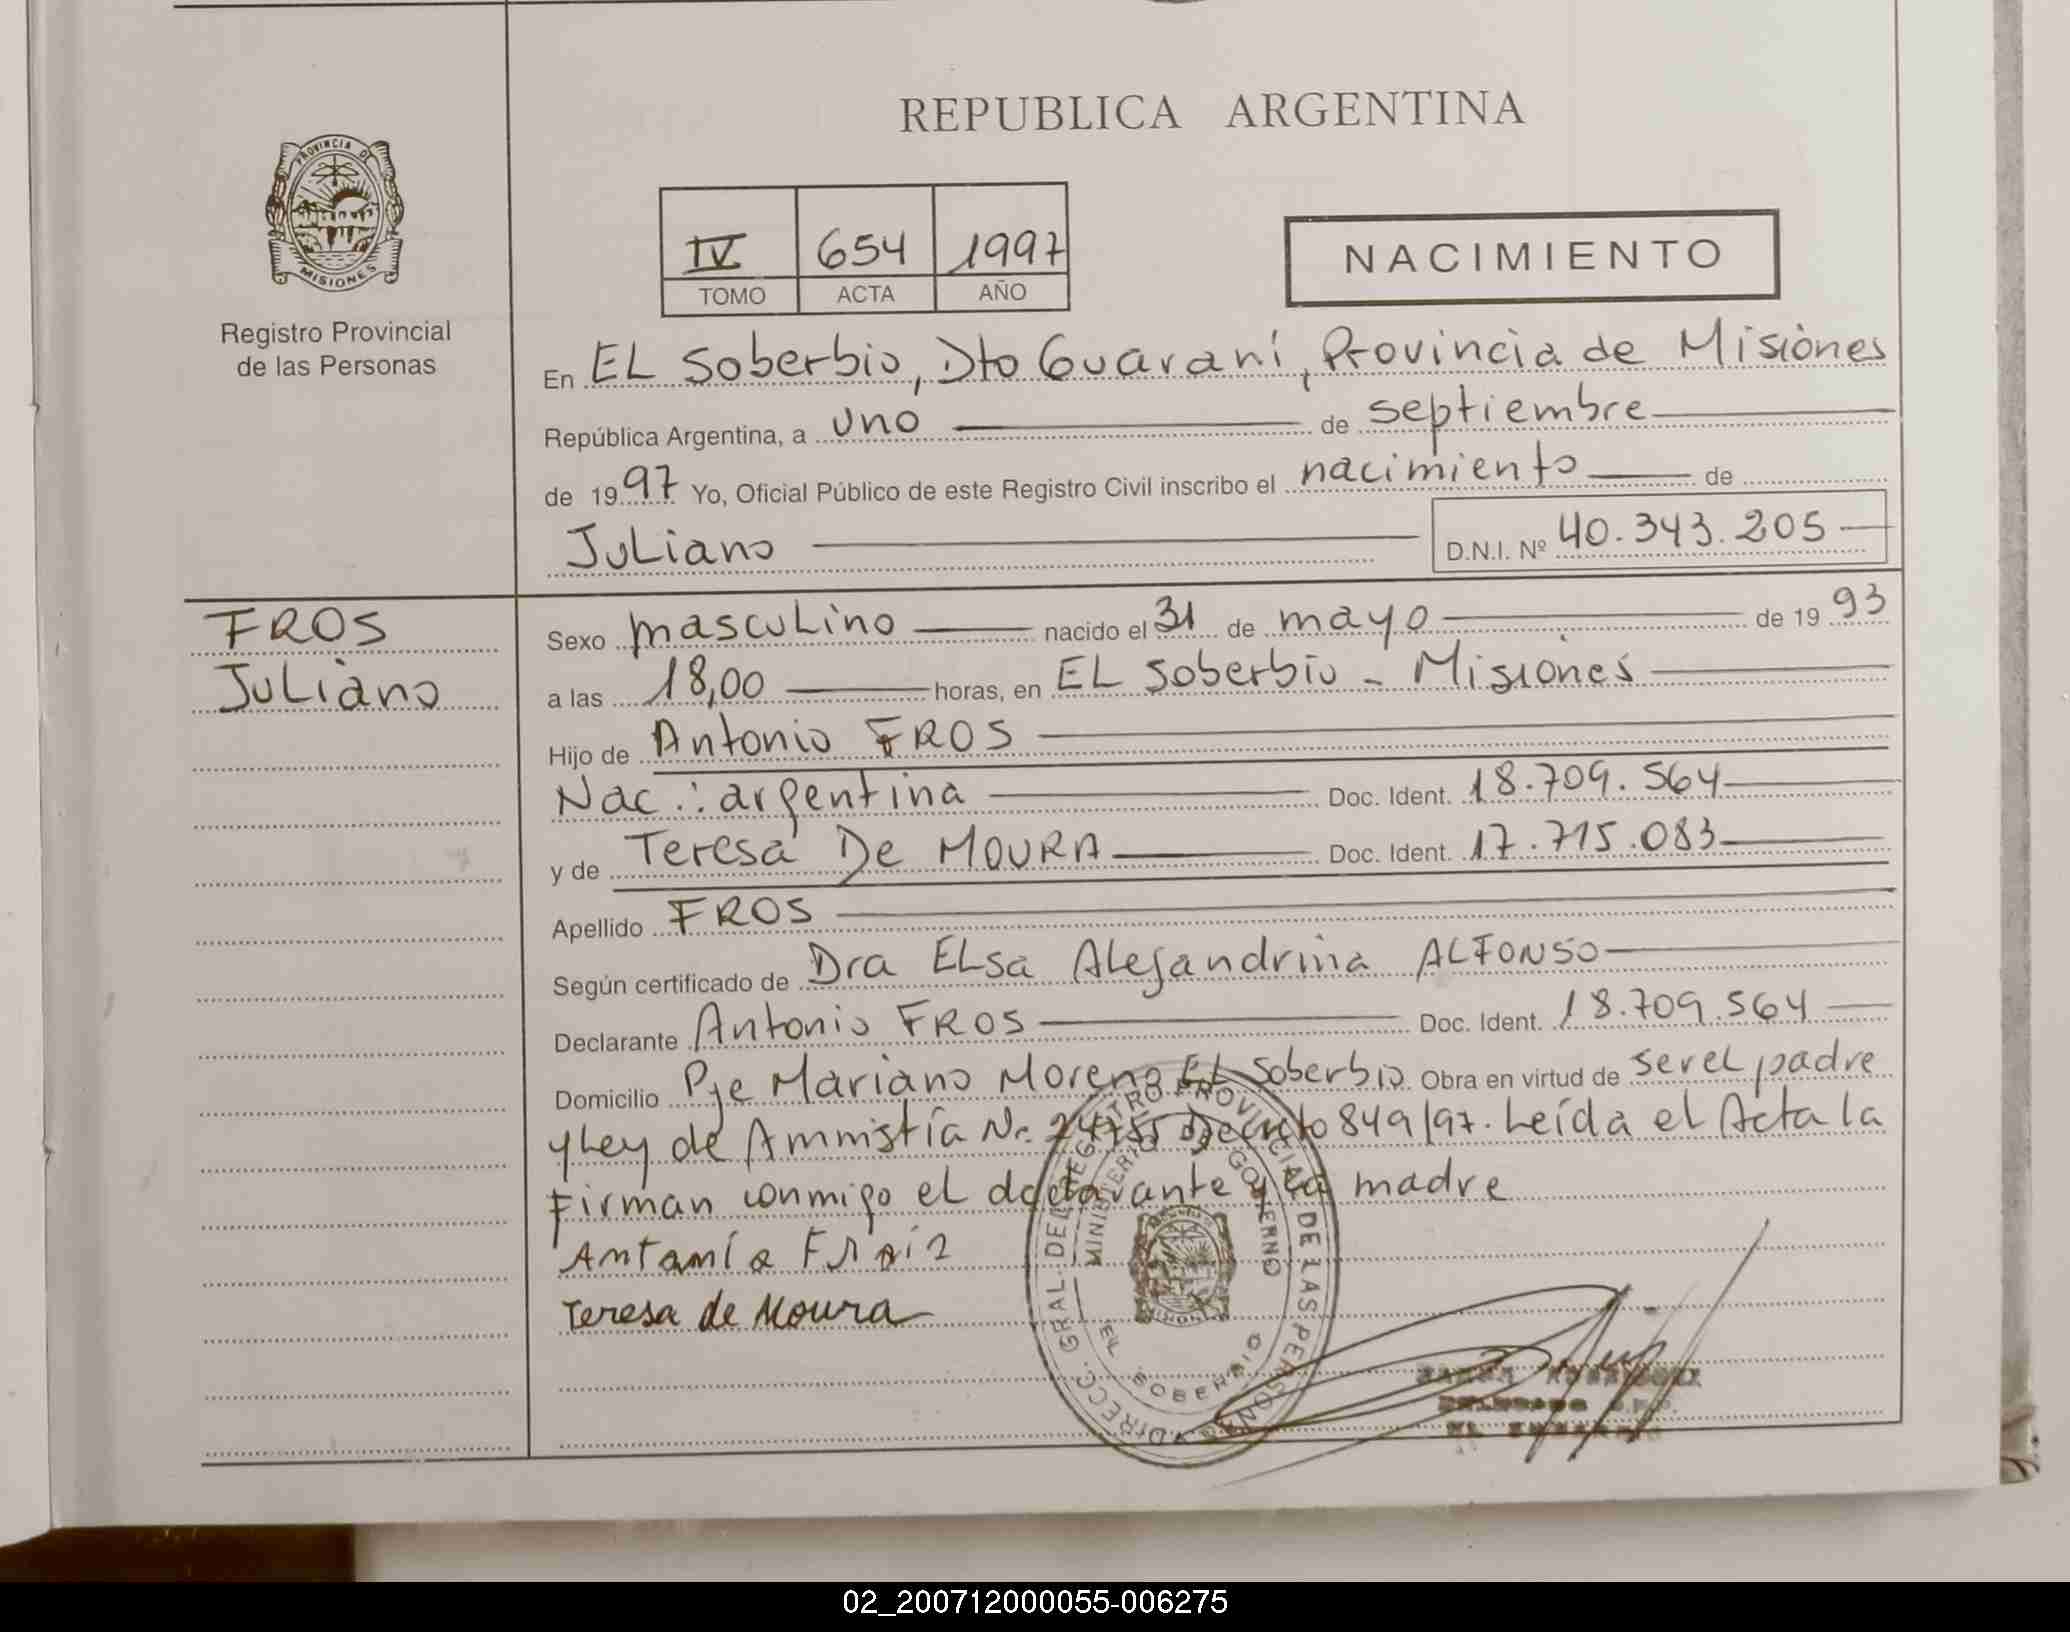 REPUBLICA ARGENTINA
PROVINCIA DE
MISIONES
Registro Provincial
de las Personas
IV 654 1997
TOMO ACTA AÑO
NACIMIENTO
En EL Soberbio, Dto Guaraní, Provincia de Misiones
República Argentina, a uno de septiembre
de 1997 Yo, Oficial Público de este Registro Civil inscribo el nacimiento de
Juliano D.N.I. Nº 40.343.205
FROS
Juliano
Sexo masculino nacido el 31 de mayo de 1993
a las 18,00 horas, en EL Soberbio - Misiones
Hijo de Antonio FROS
Nac.: argentina Doc. Ident. 18.709.564
y de Teresa De MOURA Doc. Ident. 17.715.083
Apellido FROS
Según certificado de Dra ELsa Alejandrina ALFONSO
Declarante Antonio FROS Doc. Ident. 18.709.564
Domicilio Pje Mariano Moreno EL Soberbio. Obra en virtud de ser el padre
y Ley de Amnistía Nr. Decreto 849/97. Leída el Acta la
Firman conmigo el declarante y la madre
Teresa de Moura
DIRECC. GRAL. DEL REGISTRO PROVINCIAL DE LAS PERSONAS
MINISTERIO GOBIERNO
EL SOBERBIO
02_200712000055-006275